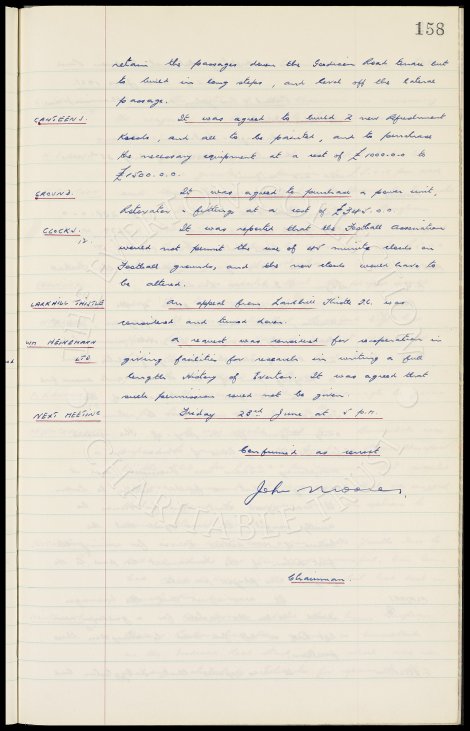 158
retain the passages down the Goodison Road terrace but
to build in long steps, and level off the lateral
passage.
CANTEENS. It was agreed to build 2 new Refreshment
Kiosks, and all to be painted, and to purchase
the necessary equipment at a cost of £1000.0.0 to
£1500.0.0.
GROUND. It was agreed to purchase a power unit,
Rotovator & fittings at a cost of £345.0.0.
CLOCKS. It was reported that the Football Association
12. would not permit the use of 45 minute clocks on
Football grounds, and the new clocks would have to
be altered.
LARKHILL THISTLE An appeal from Larkhill Thistle F.C. was
considered and turned down.
WM HEINEMANN A request was considered for co-operation in
LTD giving facilities for research in writing a full
length History of Everton. It was agreed that
such permission could not be given.
NEXT MEETING Friday 23rd June at 5 p.m.
Confirmed as correct
John Moores.
Chairman.
CHARITABLE TRUST